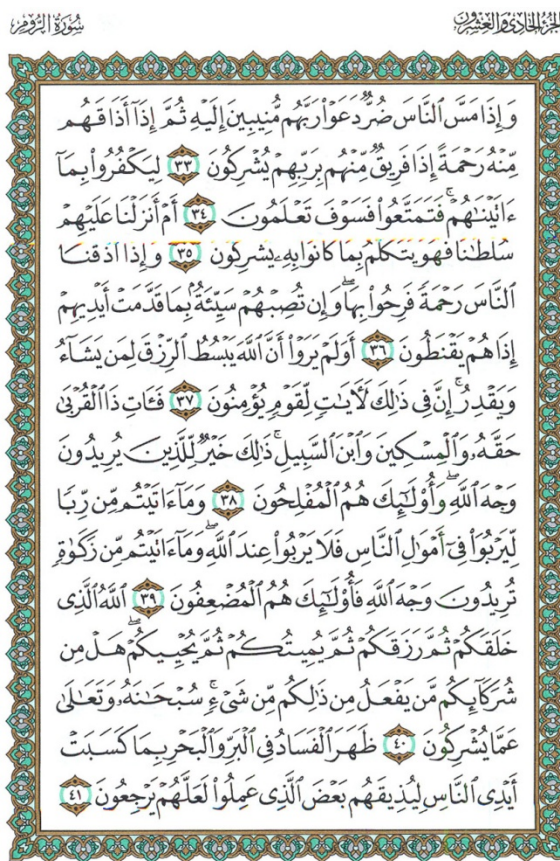 سُورَةُ الرُّومِ
الجُزْءُ الحَادِي وَالعِشْرُونَ
وَإِذَا مَسَّ ٱلنَّاسَ ضُرٌّ دَعَوْا۟ رَبَّهُم مُّنِيبِينَ إِلَيْهِ ثُمَّ إِذَآ أَذَاقَهُم
مِّنْهُ رَحْمَةً إِذَا فَرِيقٌ مِّنْهُم بِرَبِّهِمْ يُشْرِكُونَ ٣٣ لِيَكْفُرُوا۟ بِمَآ
ءَاتَيْنَٰهُمْ ۚ فَتَمَتَّعُوا۟ فَسَوْفَ تَعْلَمُونَ ٣٤ أَمْ أَنزَلْنَا عَلَيْهِمْ
سُلْطَٰنًا فَهُوَ يَتَكَلَّمُ بِمَا كَانُوا۟ بِهِۦ يُشْرِكُونَ ٣٥ وَإِذَآ أَذَقْنَا
ٱلنَّاسَ رَحْمَةً فَرِحُوا۟ بِهَا ۖ وَإِن تُصِبْهُمْ سَيِّئَةٌۢ بِمَا قَدَّمَتْ أَيْدِيهِمْ
إِذَا هُمْ يَقْنَطُونَ ٣٦ أَوَلَمْ يَرَوْا۟ أَنَّ ٱللَّهَ يَبْسُطُ ٱلرِّزْقَ لِمَن يَشَآءُ
وَيَقْدِرُ ۚ إِنَّ فِى ذَٰلِكَ لَءَايَٰتٍ لِّقَوْمٍ يُؤْمِنُونَ ٣٧ فَـَٔاتِ ذَا ٱلْقُرْبَىٰ
حَقَّهُۥ وَٱلْمِسْكِينَ وَٱبْنَ ٱلسَّبِيلِ ۚ ذَٰلِكَ خَيْرٌ لِّلَّذِينَ يُرِيدُونَ
وَجْهَ ٱللَّهِ ۖ وَأُو۟لَٰٓئِكَ هُمُ ٱلْمُفْلِحُونَ ٣٨ وَمَآ ءَاتَيْتُم مِّن رِّبًا
لِّيَرْبُوَا۟ فِىٓ أَمْوَٰلِ ٱلنَّاسِ فَلَا يَرْبُوا۟ عِندَ ٱللَّهِ ۖ وَمَآ ءَاتَيْتُم مِّن زَكَوٰةٍ
تُرِيدُونَ وَجْهَ ٱللَّهِ فَأُو۟لَٰٓئِكَ هُمُ ٱلْمُضْعِفُونَ ٣٩ ٱللَّهُ ٱلَّذِى
خَلَقَكُمْ ثُمَّ رَزَقَكُمْ ثُمَّ يُمِيتُكُمْ ثُمَّ يُحْيِيكُمْ ۖ هَلْ مِن
شُرَكَآئِكُم مَّن يَفْعَلُ مِن ذَٰلِكُم مِّن شَىْءٍ ۚ سُبْحَٰنَهُۥ وَتَعَٰلَىٰ
عَمَّا يُشْرِكُونَ ٤٠ ظَهَرَ ٱلْفَسَادُ فِى ٱلْبَرِّ وَٱلْبَحْرِ بِمَا كَسَبَتْ
أَيْدِى ٱلنَّاسِ لِيُذِيقَهُم بَعْضَ ٱلَّذِى عَمِلُوا۟ لَعَلَّهُمْ يَرْجِعُونَ ٤١